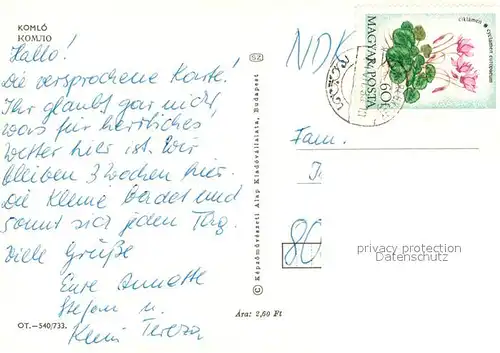 KOMLÓ
КОМЛО
Hallo!
Die versprochene Karte!
Ihr glaubt gar nicht,
was für herrliches
Wetter hier ist. Wir
bleiben 3 Wochen hier.
Die Kleine badet und
sonnt sich jeden Tag.
Viele Grüße
Eure Annette
Stefan u.
Klein Tereza
OT.—540/733.
SZ
© Képzőművészeti Alap Kiadóvállalata, Budapest
Ára: 2,60 Ft
NDK
MAGYAR POSTA
60f
ciklámen • cyclamen europaeum
Fam.
80
privacy protection
Datenschutz